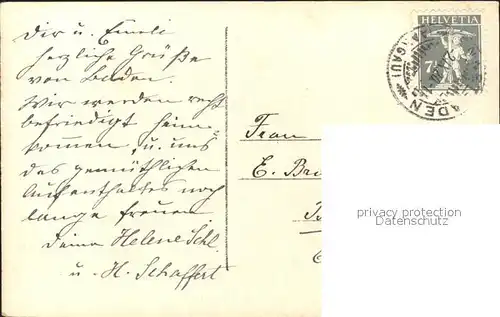 Dir u. Emeli
herzliche Grüße
von Baden.
Wir werden recht
befriedigt heim-
kommen, u. uns
des gemüthlichen
Aufenthaltes noch
lange freuen
Deine Helene Schl.
u. H. Schaffert
HELVETIA
7½
BADEN
(AARGAU)
Frau
E. Br
privacy protection
Datenschutz